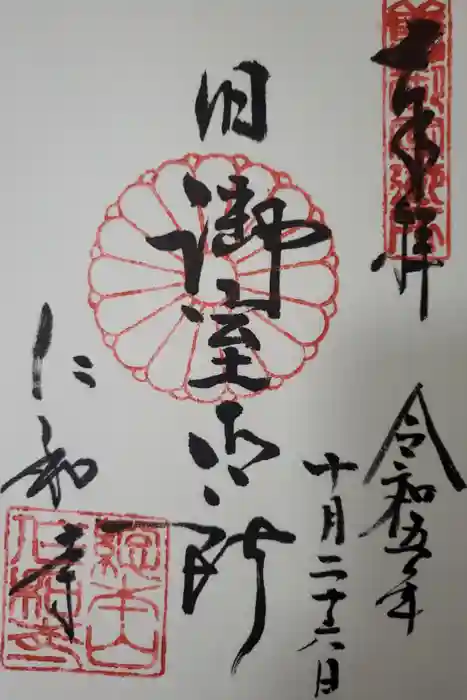 奉拝
令和五年
十月二十六日
旧御室御所
仁和寺
總本山
仁和寺